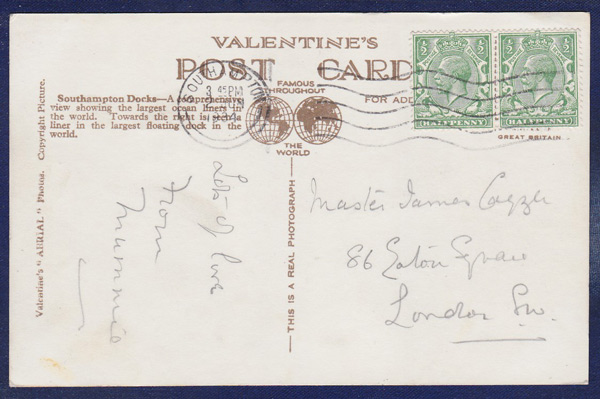 VALENTINE'S
POST CARD
FAMOUS
THROUGHOUT
THE
WORLD
FOR ADD
Southampton Docks—A comprehensive
view showing the largest ocean liners in
the world. Towards the right is seen a
liner in the largest floating dock in the
world.
Valentine's "AERIAL" Photos. Copyright Picture.
SOUTHAMPTON
3 45 PM
½ ½
HALFPENNY
½ ½
HALFPENNY
GREAT BRITAIN
THIS IS A REAL PHOTOGRAPH
Lots of love
from
Mummie
Master James Cayzer
86 Eaton Square
London SW.